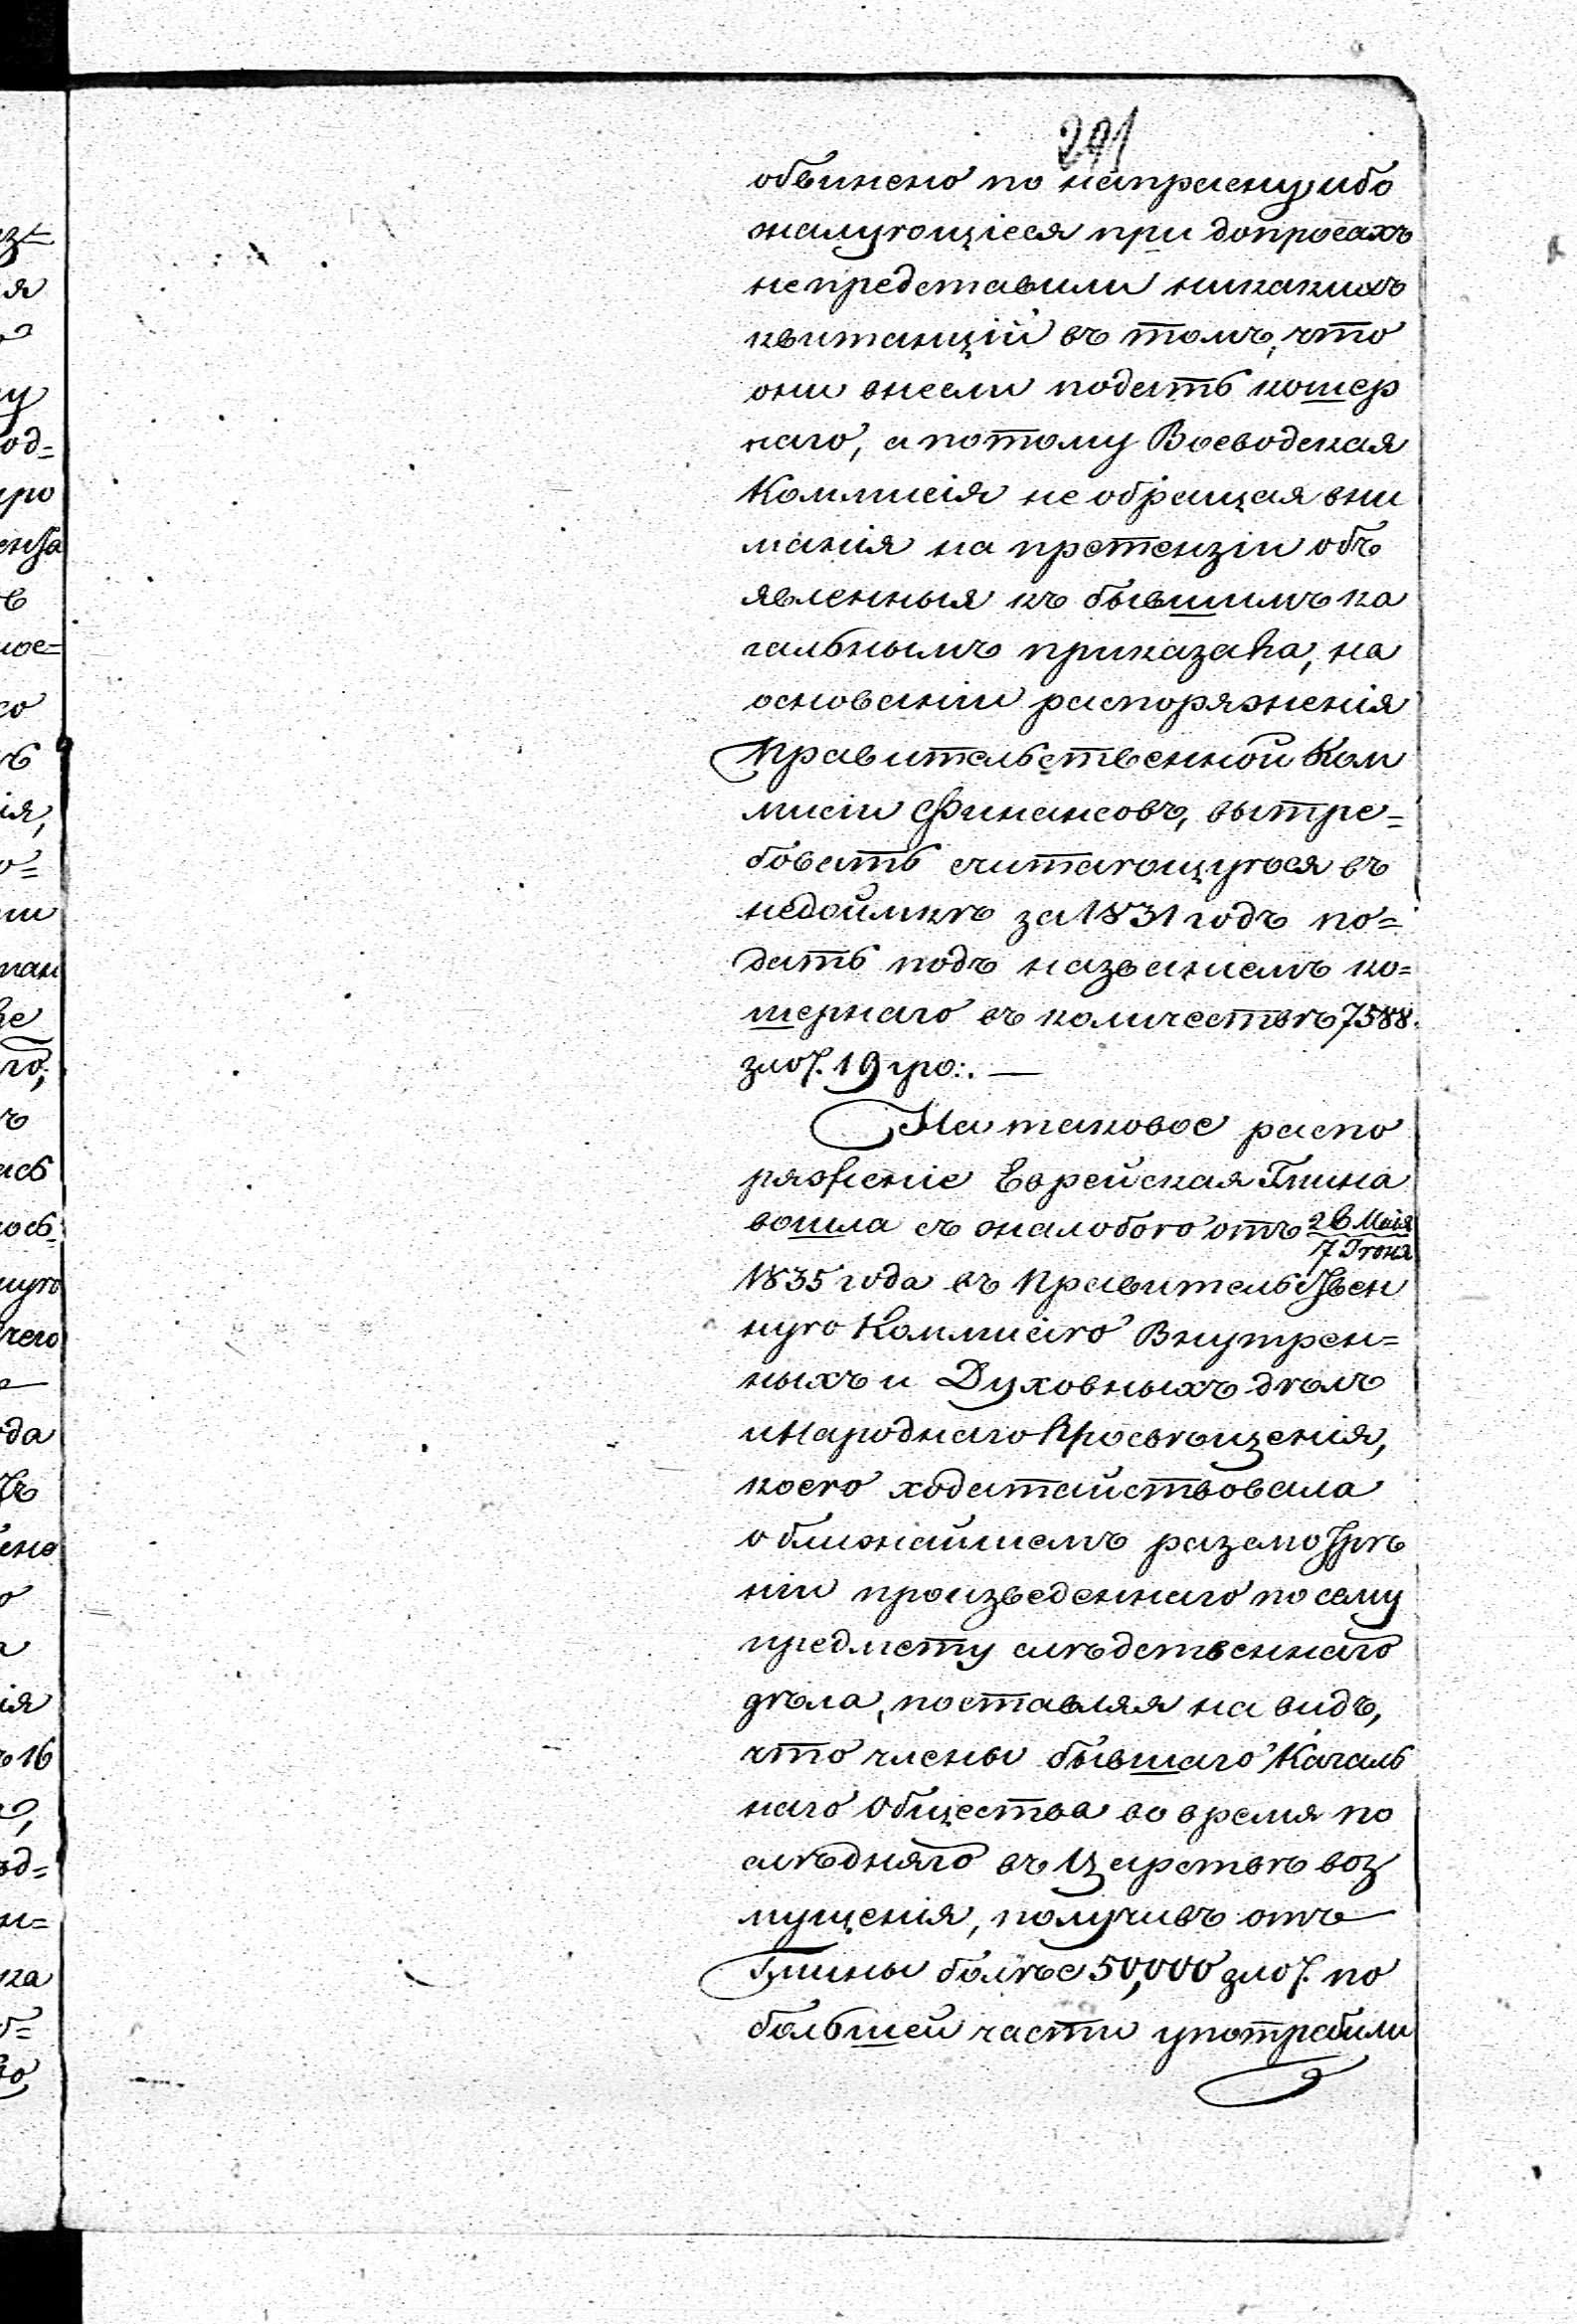 291
обвинено по напрасну ибо
жалующіеся при допросахъ
не представили никакихъ
квитанцій въ томъ, что
они внесли подать кошер
наго, а потому Воеводская
Коммисія не обращая вни
манія на претензіи объ
явленныя къ бывшимъ ка
гальнымъ приказа, на
основаніи распоряженія
Правительственной Ком
мисіи Финансовъ, вытре=
бовать считающуюся въ
недоимкѣ за 1831 годъ по=
дать подъ названіемъ ко=
шернаго въ количествѣ 7588.
злот. 19 гро:. —
На таковое распо
ряженіе Еврейская Гмина
вошла съ жалобою отъ 26 Мая
7 Іюня
1835 года въ Правительствен
ную Коммисію Внутрен=
ныхъ и Духовныхъ дѣлъ
и Народнаго Просвѣщенія,
коею ходатайствовала
о ближайшемъ разсмотрѣ
ніи произведеннаго по сему
предмету слѣдственнаго
дѣла, поставляя на видъ,
что члены бывшаго Кагаль
наго Общества во время по
слѣдняго въ Царствѣ воз
мущенія, получивъ отъ
Гмины болѣе 50,000 злот. по
большей части употребили